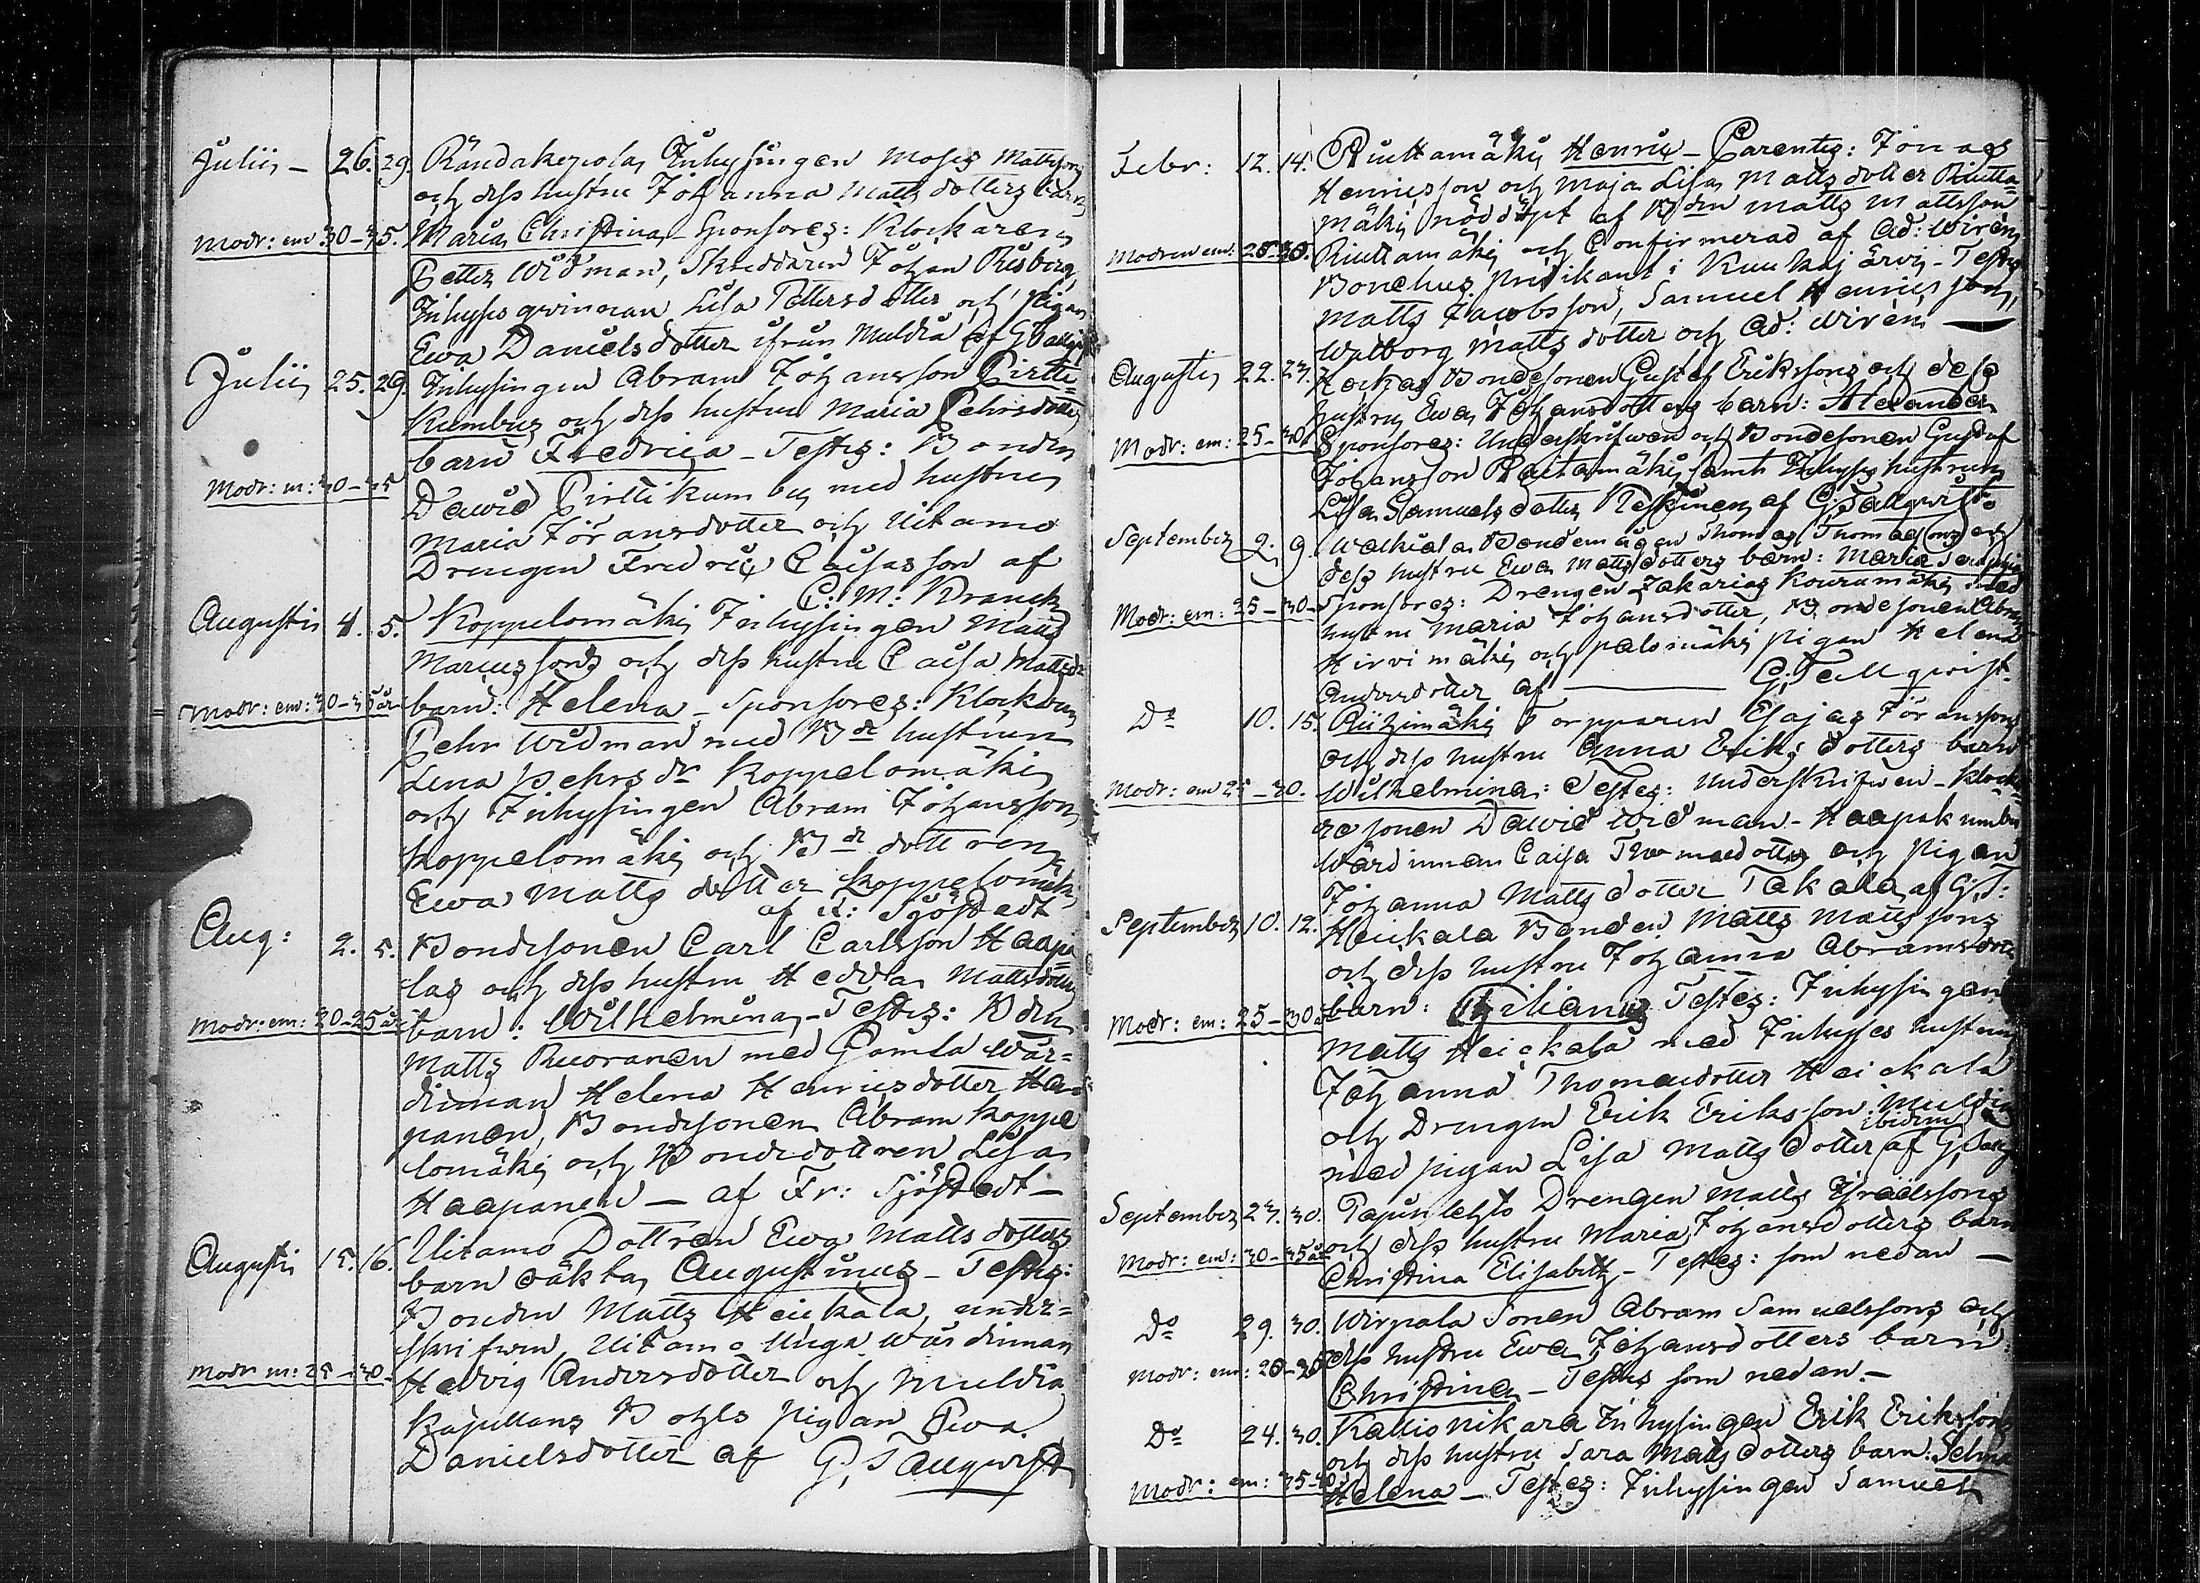 Julii – 26. 29. Inhysingen Moses Mattssons
och dess hustru Johanna Mattsdotters barn
Modr: em 30–35. Maria Christina – Sponsores: Klockaren
Petter Widman, Skreddaren Johan Risberg,
Inhyses qwinnan Lisa Pettersdotter och pigan
Ewa Danielsdotter ifrån Muldia af G Tallgvist
Julii 25. 29. Inhysingen Abram Johansson Pirtti-
Kumbus och dess hustru Maria Pehrsdotters
barn Fredrica – Testes: Bonden
Modr: m: 30–35 Dawid Pirttikumbu med hustru
Maria Göransdotter och Uitamo
Drengen Fredric Caisasson af
C: M: Kranck
Augusti 4. 5. Koppelomäki Inhysingen Matts
Marcussons och dess hustru Caisa Mattsdr
Modr: em: 30–35 år barn: Helena – Sponsores: Klockaren
Pehr Widman med Bde hustrun
Lena Pehrsdr Koppelomäki
och Inhysingen Abram Johansson
Koppelomäki och Bde dottren
Ewa Mattsdotter Koppelomäki
af Sjöstedt
Aug: 2. 5. Bondesonen Carl Carlsson Haapa
las och dess hustru Hedda Mattsdotters
Modr: em: 20–25 år barn: Wilhelmina – Testes: Bden
Matts Ruoranen med Gamla Wär-
dinnan Helena Henricsdotter Haa-
panen, Bondesonen Abram Koppe
lomäki och Bondedottren Lisa
Haapanen – af Fr: Sjöstedt –
Augusti 15. 16. Uitamo Dottren Ewa Mattsdotters
barn oäkta, Augustinus – Testes:
Bonden Matts Heickala, under-
skrifwen Uitamo Unga Wärdinnan
Modr m: 25–30 Hedvig Andersdotter och Muldia
Kapellans Bohls pigan Ewa
Danielsdotter af G. Tallqwist
Febr: 12. 14. Riuttamäki Henric – Parentes: Jonas
Henricsson och Maja Lisa Mattsdotter Riutta-
mäki nöddöpt af Bden Matts Mattsson
Modren em: 25–30. Riuttamäki och Confirmerad af Ad: Wirén
predikant i Kuuhkajärvi – Testes
Matts Jacobsson, Samuel Henricsson,
Walborg Mattsdotter och Ad: Wirén
Augusti 22. 23. Bondesonen Gustaf Erikssons och dess
hustru Ewa Johansdotters barn: Alexander
Modr: em: 25–30 Sponsores: Underskrifwen och Bondesonen Gustaf
Johansson Rautamäki samt Inhyses hustrun
Lisa Samuelsdotter Keskinen af G: Tallqwist
September 9. 9. Walkiala Bondemågen Thomas Thomassons och
dess hustru Ewa Mattsdotters barn: Maria
Modr: em: 25–30 Sponsores: Drengen Zakarias Kouramäki med
hustru Maria Johansdotter, Bondesonen Abram
Hirvimäki och Palomäki pigan Helena
Andersdotter af G: Tallqwist.
Do 10. 15. Riizimäki Torpparen Esajas Göranssons
och dess hustru Anna Eriksdotters barn
Modr: em 25–30. Wilhelmina: Testes: Underskrifwen – Klocka-
resonen Dawid Widman – Haapakumbu
Wärdinnan Caisa Thomasdotter och pigan
Johanna Mattsdotter Takala af G: T:
September 10. 12. Heickala Bonden Matts Mattssons
och dess hustru Johanna Abramsdotters
Modr: em: 25–30 barn: Testes: Inhysingen
Matts Heickala med Inhyses hustrun
Johanna Thomasdotter Heickala
och Drengen Erik Eriksson Muldia
ibidem
med pigan Lisa Mattsdotter af G. Tallq
September 23. 30. Drengen Matts Israelssons
Modr: em: 30–35 år och dess hustru Maria Johansdotters barn
Christina Elisabeth – Testes: som nedan –
Do 29. 30. Wirpala Sonen Abram Samuelssons och
Modr: em: dess hustru Ewa Johansdotters barn:
Christina – Testes som nedan. –
Do 24. 30. Kallionikara Inhysingen Erik Erikssons
och dess hustru Sara Mattsdotters barn: Selma
Modr: em: 35–40 Helena – Testes: Inhysingen Samuel